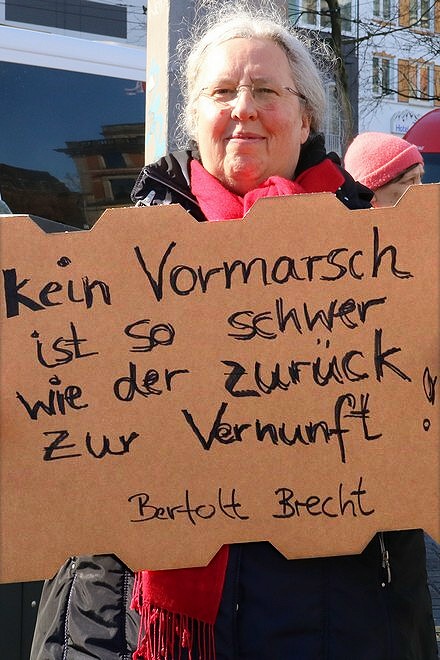 kein Vormarsch
ist so schwer
wie der zurück
zur Vernunft!
Bertolt Brecht